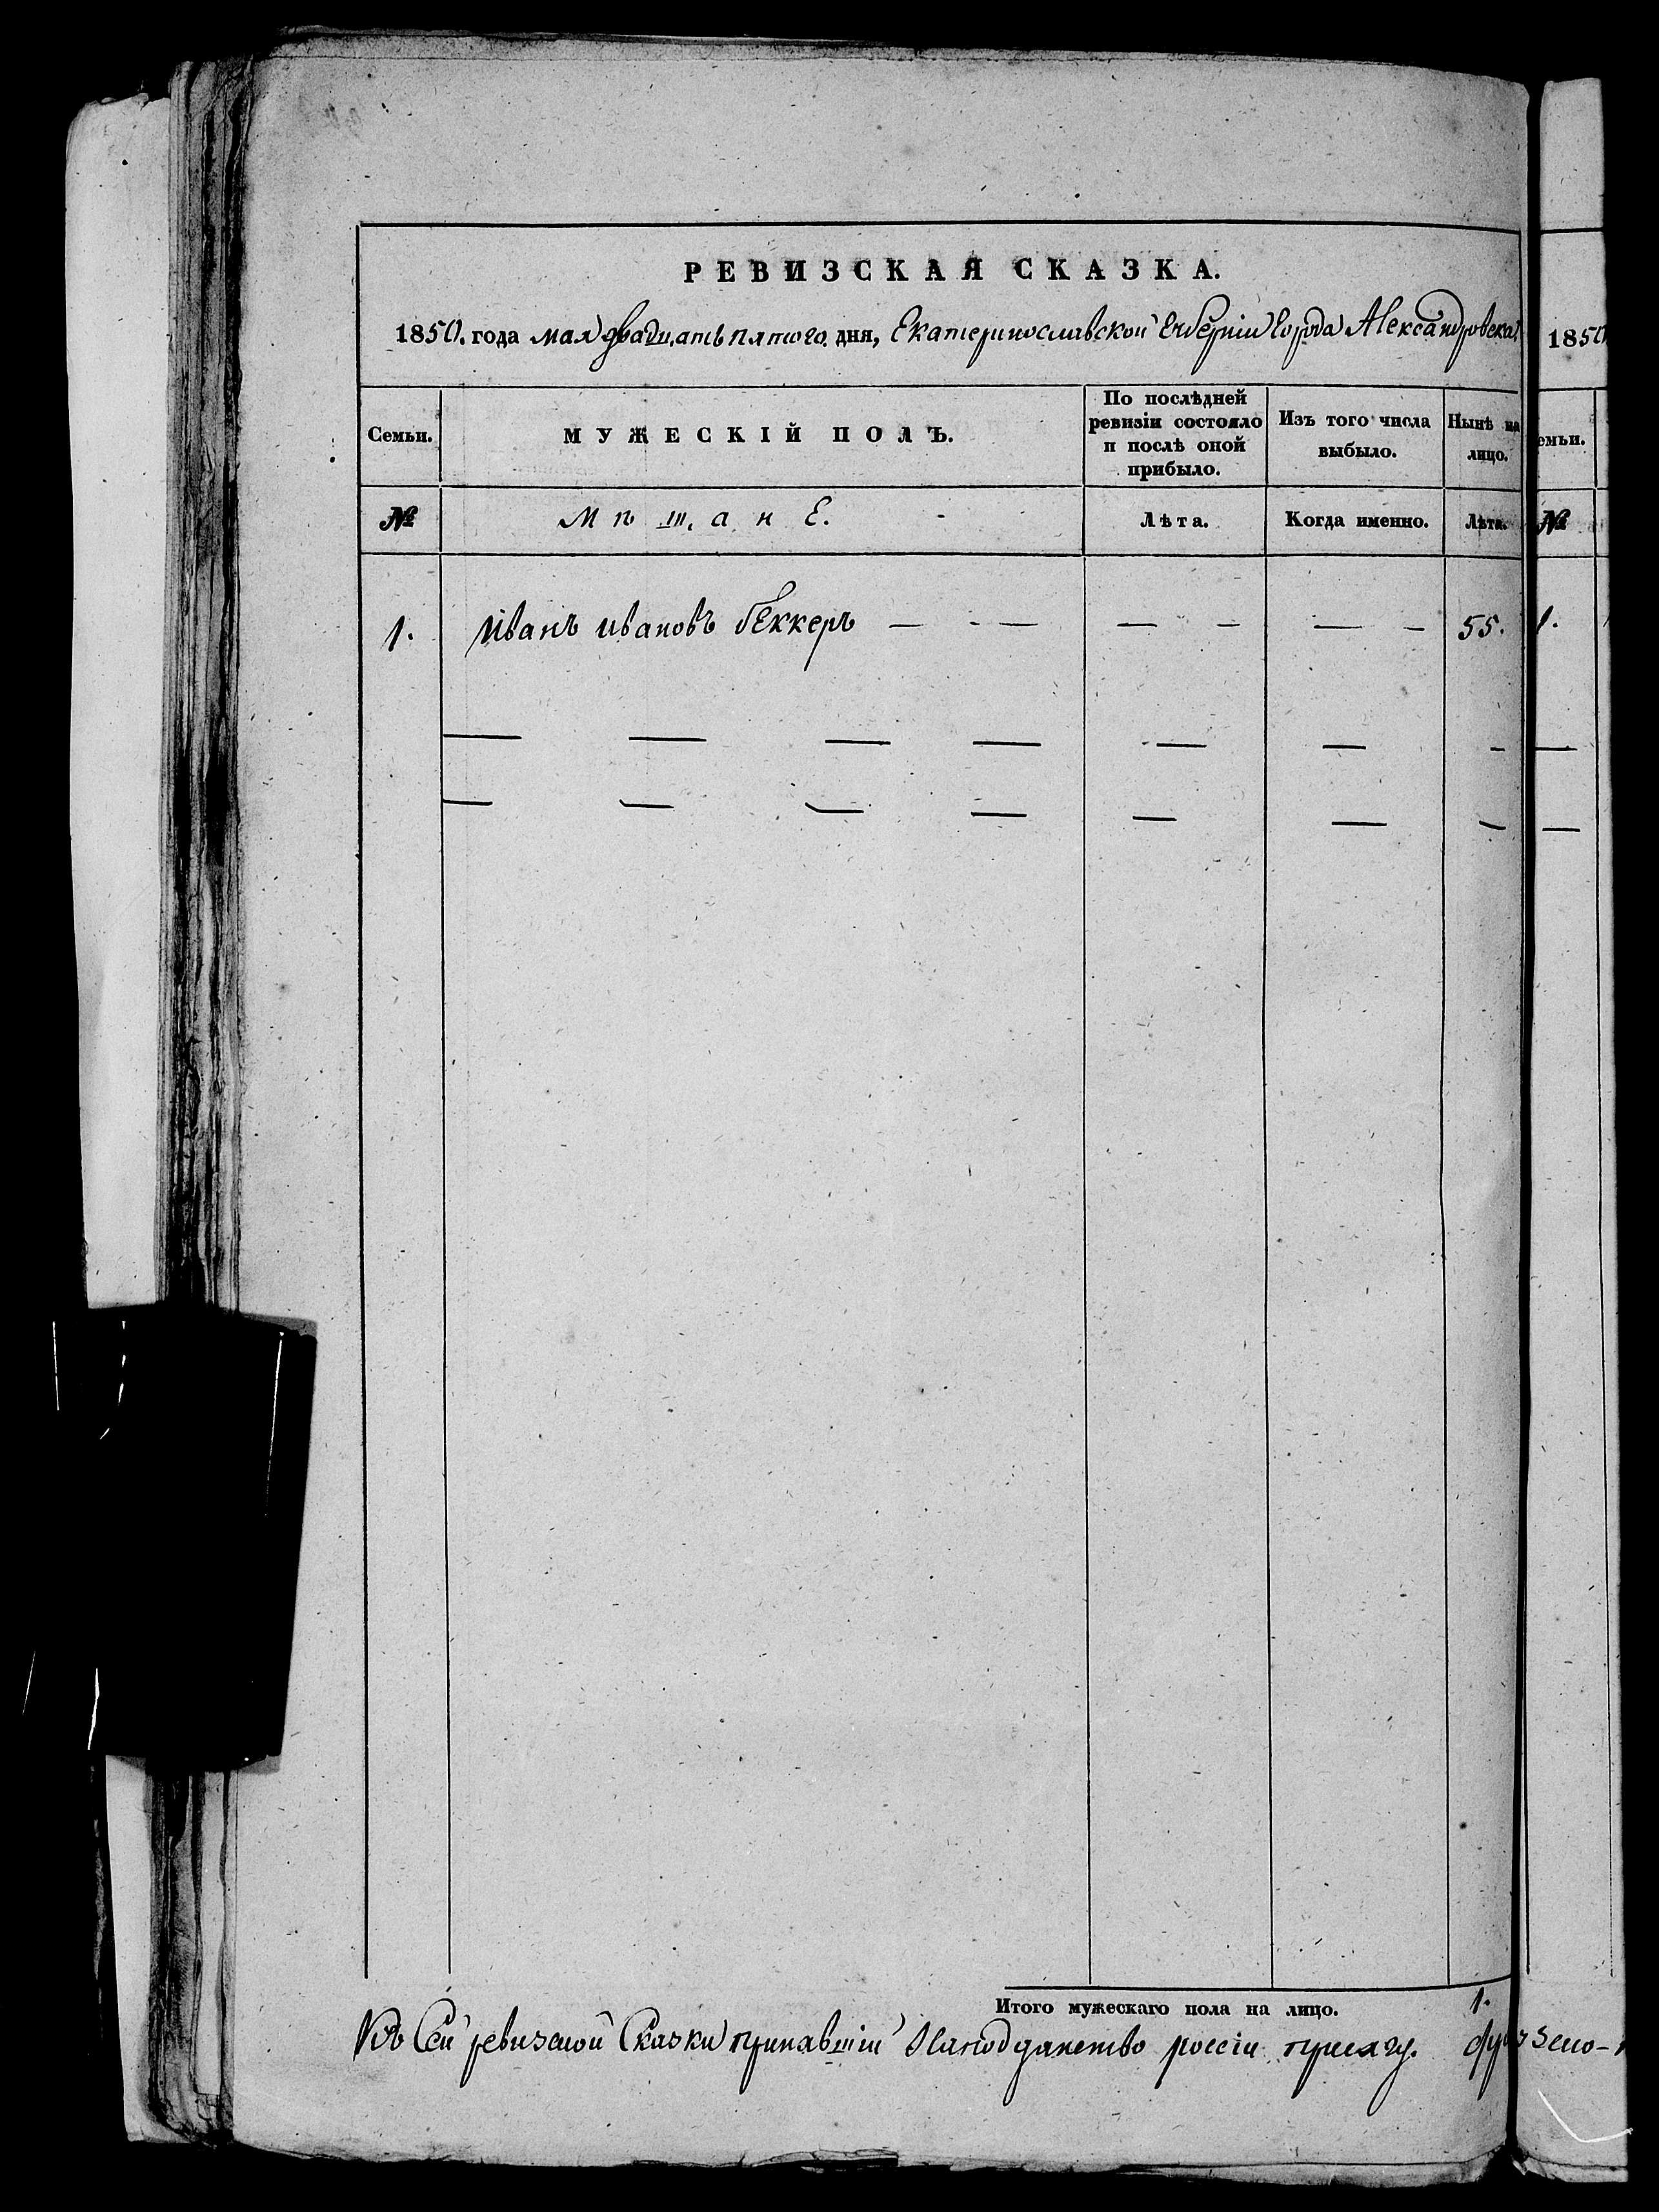 РЕВИЗСКАЯ СКАЗКА.
1850. года мая двадцать пятого дня, Екатеринославской Губерніи Города Александровска
Семьи. МУЖЕСКІЙ ПОЛЪ. По послѣдней ревизіи состояло и послѣ оной прибыло. Изъ того числа выбыло. Нынѣ на лицо.
№ Мѣщане. Лѣта. Когда именно. Лѣта.
1. Иванъ Ивановъ Беккеръ — - — — — — — 55.
Итого мужескаго пола на лицо. 1.
Къ Сей ревизской Сказки принявшій на подданство россіи присягу.
1850
емьи.
№
1.